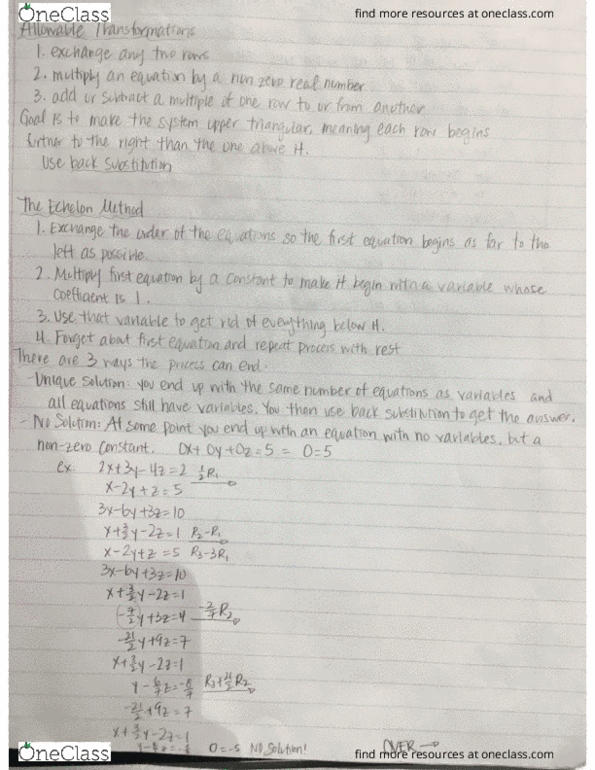 OneClass
find more resources at oneclass.com
Allowable Transformations
1. exchange any two rows
2. multiply an equation by a non zero real number
3. add or subtract a multiple of one row to or from another
Goal is to make the system upper triangular, meaning each row begins
further to the right than the one above it.
Use back substitution
The Echelon Method
1. Exchange the order of the equations so the first equation begins as far to the
left as possible.
2. Multiply first equation by a constant to make it begin with a variable whose
coefficient is 1.
3. Use that variable to get rid of everything below it.
4. Forget about first equation and repeat process with rest
There are 3 ways the process can end.
- Unique Solution: you end up with the same number of equations as variables and
all equations still have variables. You then use back substitution to get the answer.
- No Solution: At some point you end up with an equation with no variables, but a
non-zero constant. 0x+0y+0z=5 = 0=5
ex: 2x+3y-4z=2 ½R₁
x-2y+z=5
3x-6y+3z=10
x+3/2y-2z=1 R₂-R₁
x-2y+z=5 R₃-3R₁
3x-6y+3z=10
x+3/2y-2z=1
-7/2y+3z=4 -2/7R₂
-21/2y+9z=7
x+3/2y-2z=1
y-6/7z=-8/7 R₃+21/2R₂
-21/2+9z=7
x+3/2y-2z=1
0=-5 NO Solution!
OVER →
OneClass
find more resources at oneclass.com